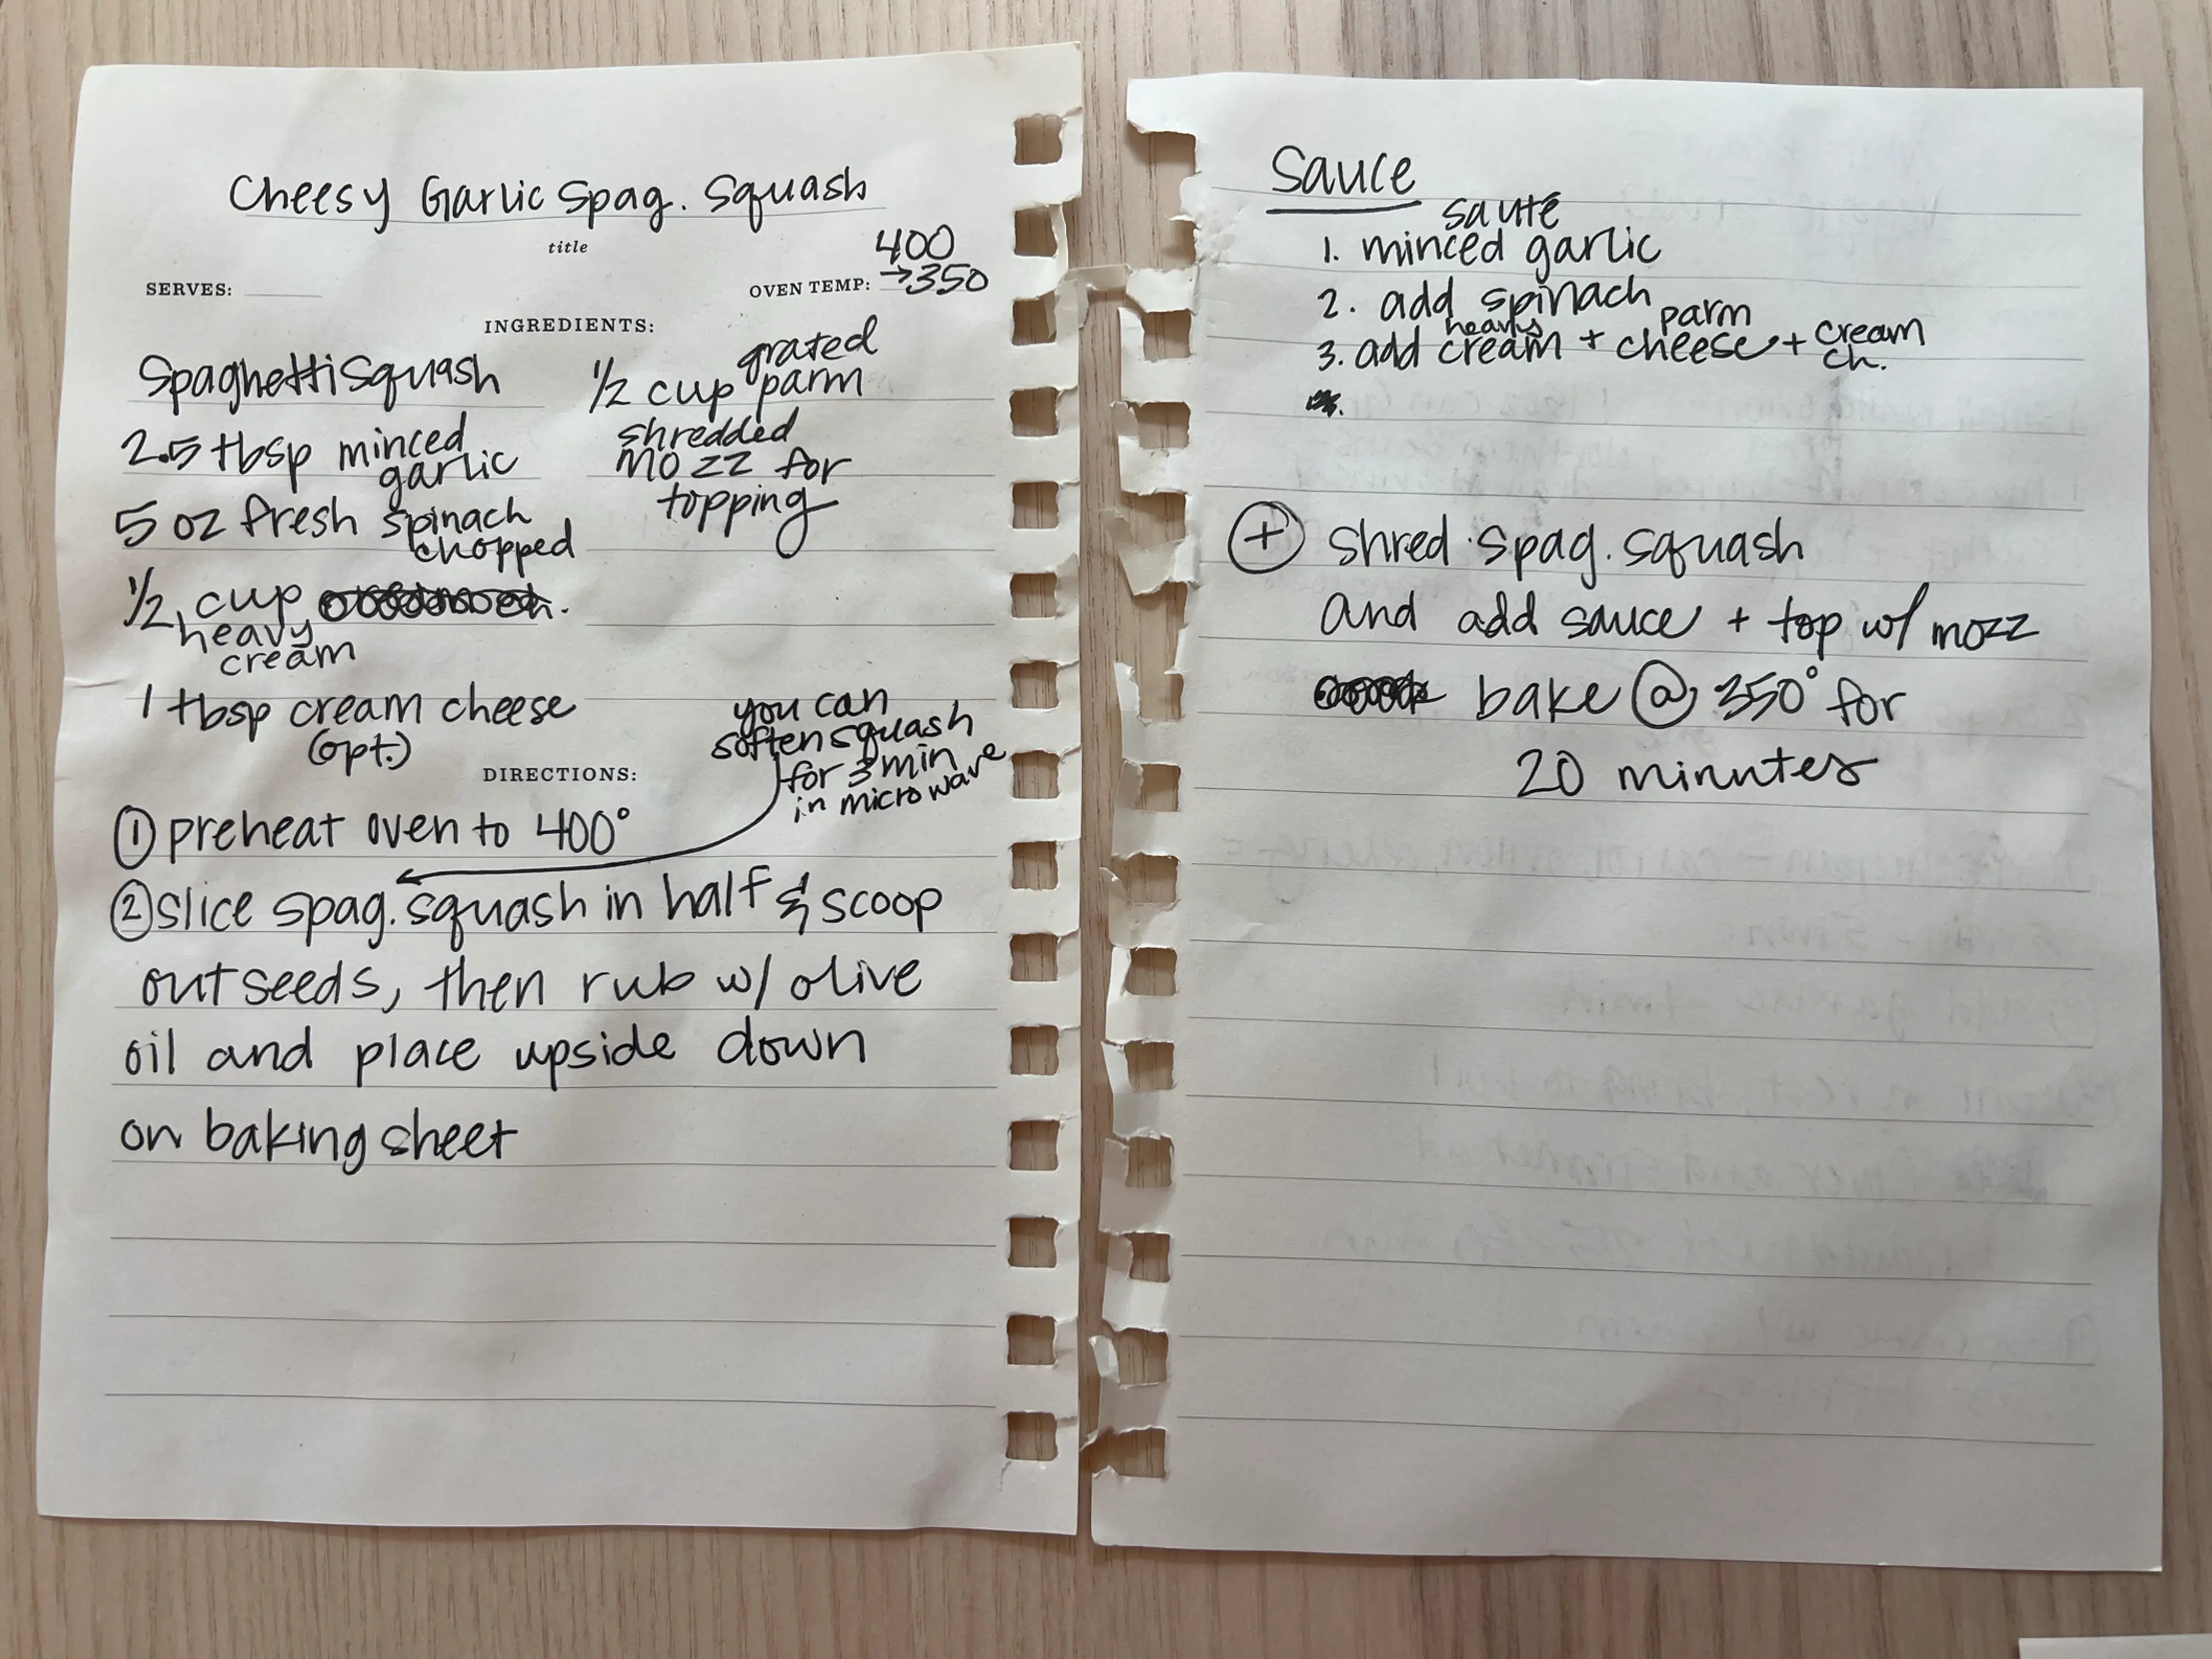 Cheesy Garlic Spag. Squash
title
SERVES:
OVEN TEMP: 400
→350
INGREDIENTS:
Spaghetti Squash
2.5 tbsp minced
garlic
5 oz fresh spinach
chopped
1/2 cup
heavy
cream
1 tbsp cream cheese
(opt.)
1/2 cup grated
parm
shredded
mozz for
topping
you can
soften squash
for 3 min
in microwave
DIRECTIONS:
① preheat oven to 400°
② slice spag. squash in half & scoop
out seeds, then rub w/ olive
oil and place upside down
on baking sheet
Sauce
sauté
1. minced garlic
2. add spinach
heavy parm
3. add cream + cheese + cream
ch.
⊕ shred spag. squash
and add sauce + top w/ mozz
bake @ 350° for
20 minutes